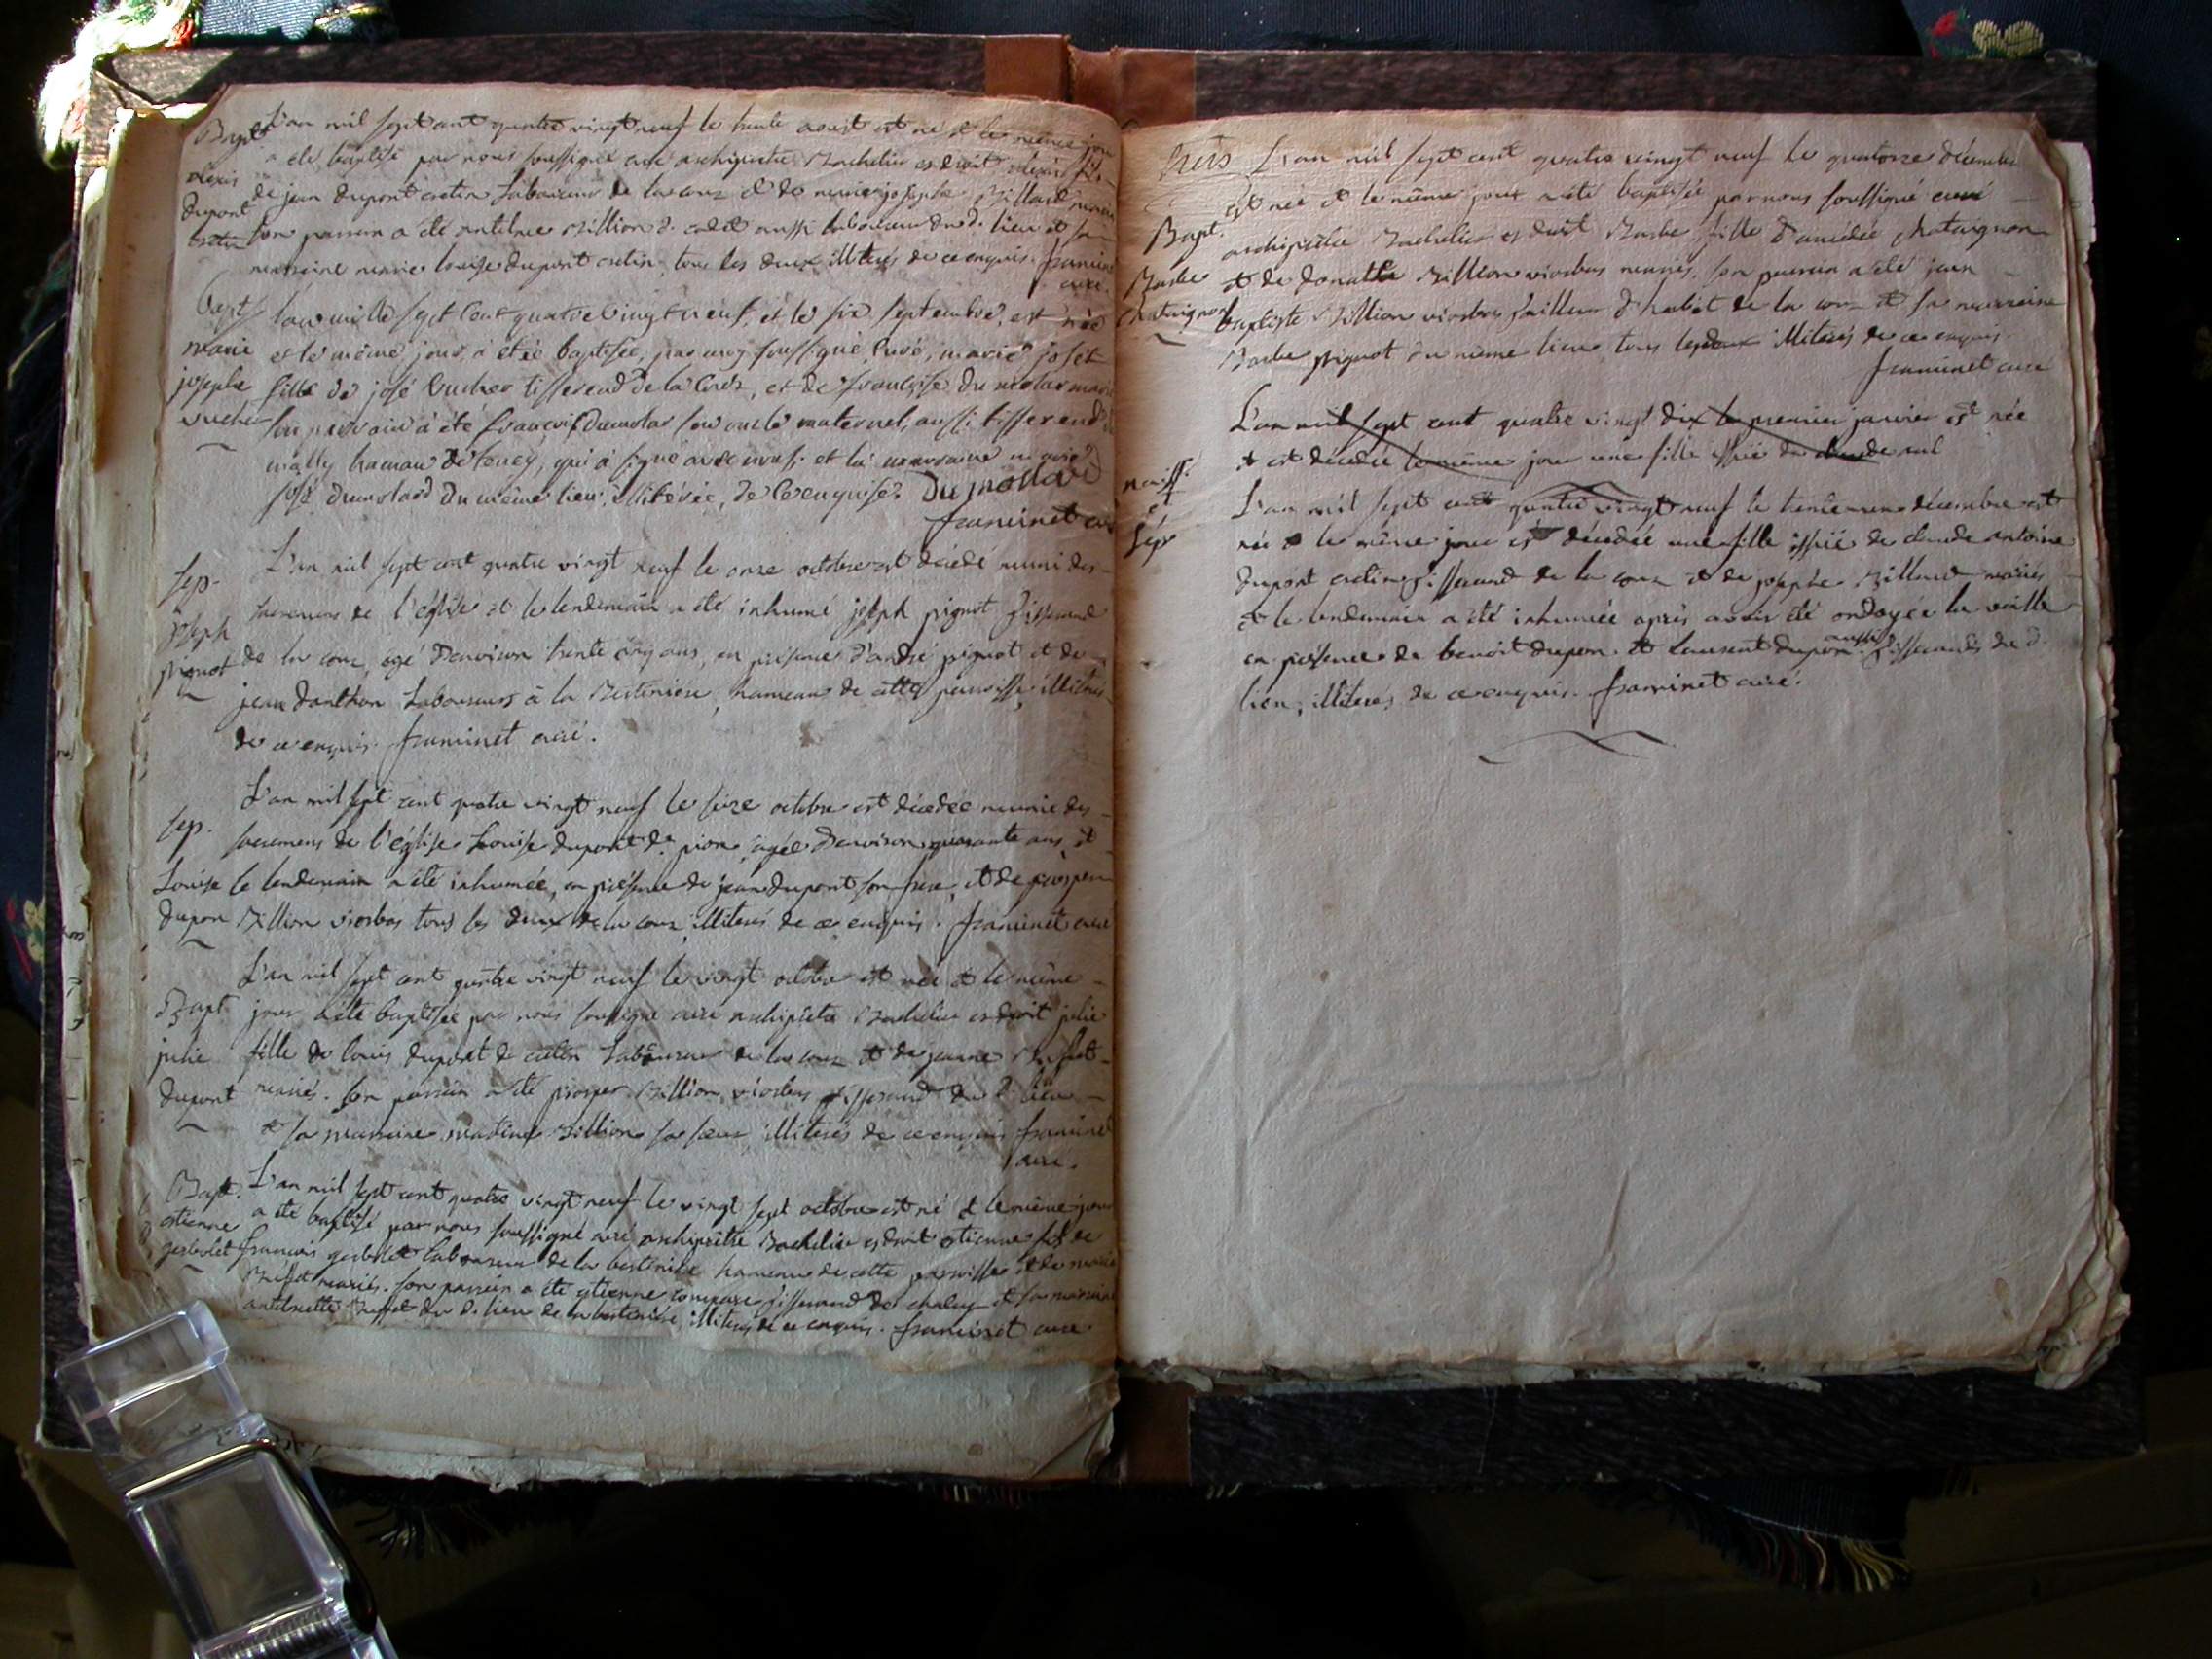 Bapt. L'an mil sept cent quatre vingt neuf le trente aoust est né et le même jour
alexis a été baptisé par nous soussigné curé archiprêtre Bachelier es droit alexis fils
dupont de jean dupont cretin Laboureur de la cour et de marie josephe Billard mariés
cretin son parrain a été antelme Billion aussi laboureur du d. lieu et sa
marraine marie louise dupont cretin, tous les deux illiterés de ce enquis. framinet
curé.
Bapt. l'an mille sept Cent quatre Vingt neuf, et le six septembre, est née
marie et le même jour, a étée baptisée, par moy soussigné Curé, marie josete
josephe fille de josé Vucher tisserend de la Cour, et de françoise du molar mariés
vucher son parrain a été françois dumolar son oncle maternel, aussi tisserend
hameau de qui a signé avec nous, et la marraine marie
josé dumolard du même lieu, illiterée, de Ce enquise. Du mollard
framinet curé
L'an mil sept cent quatre vingt neuf le onze octobre est décédé muni des
sep. sacremens de l'église et le lendemain a été inhumé joseph pignot Tisserand
joseph
pignot de la cour, agé d'environ trente cinq ans, en présence d'andré pignot et de
jean danthon Laboureurs à la Bertiniere, hameau de cette paroisse, illiterés
de ce enquis. framinet curé.
L'an mil sept cent quatre vingt neuf le seize octobre est décédée munie des
sep. sacremens de l'église Louise dupont de pion, agée d'environ quarante ans, et
Louise le lendemain a été inhumée, en présence de jean dupont son frère, et de prosper
dupon Billion viorbas tous les deux de la cour illiterés de ce enquis. framinet curé
L'an mil sept cent quatre vingt neuf le vingt octobre est née et le même
Bapt jour a été baptisée par nous soussigné curé archiprêtre Bachelier es droit julie
julie fille de louis dupont de cretin Laboureur de la cour et de jeanne
dupont mariés. son parrain a été prosper Billion viorbas Tisserand du d. lieu
et sa marraine martine Billion sa sœur illiterés de ce enquis framinet
curé.
Bapt. L'an mil sept cent quatre vingt neuf le vingt sept octobre est né et le même jour
etienne a été baptisé par nous soussigné curé archiprêtre Bachelier es droit etienne fils de
gerbolet francois gerbolet laboureur de la bertiniere hameau de cette paroisse et de marie
Buffet mariés. son parrain a été etienne compare Tisserand de chaley et sa marraine
antelmette Buffet du d. lieu de la bertiniere, illiterés de ce enquis. framinet curé
L'an mil sept cent quatre vingt neuf le quatorze décembre
est née et le même jour a été baptisée par nous soussigné curé
Bapt. archiprêtre Bachelier es droit Barbe fille d'amédée chataignon
Barbe et de donatte Billion viorbas mariés. son parrain a été jean
chataignon baptiste Billion viorbas Tailleur d'habit de la cour et sa marraine
Barbe pignot du même lieu, tous les deux illiterés de ce enquis.
framinet curé
L'an mil sept cent quatre vingt dix le premier janvier est née
et est décédée le même jour une fille issüe de claude
naiss. L'an mil sept cent quatre vingt neuf le trente un décembre est
et
sép née et le même jour est décédée une fille issüe de claude antoine
dupont cretin Tisserand de la cour et de josephe Billard mariés
et le lendemain a été inhumée après avoir été ondoyée la veille
en présence de benoit dupon. et laurent dupon aussi Tisserands du d.
lieu, illiterés de ce enquis. framinet curé.